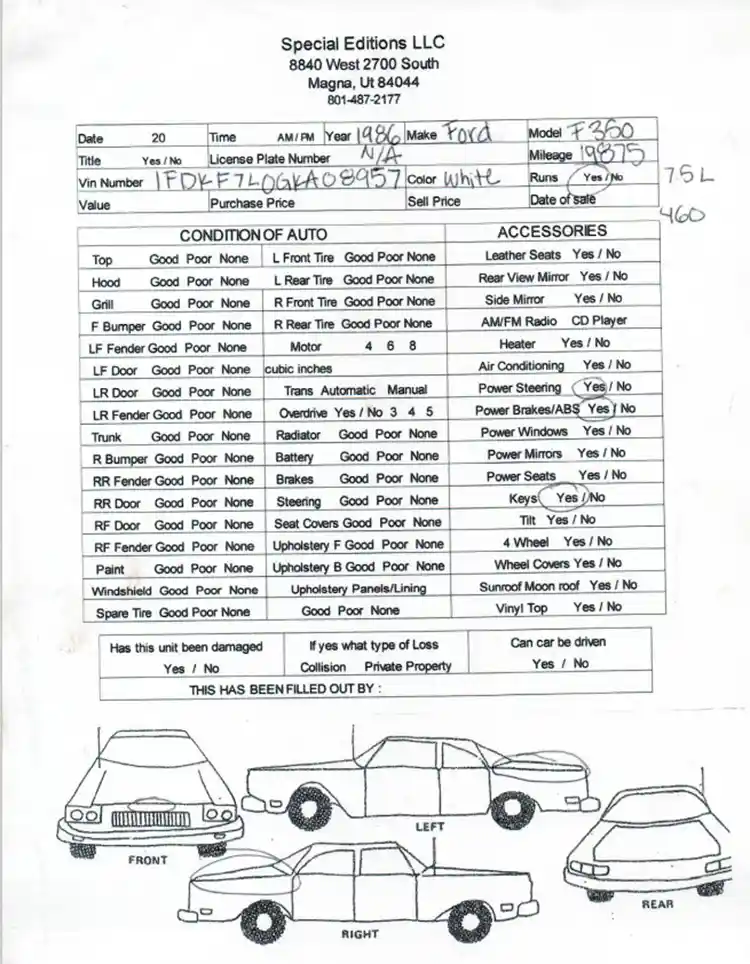 Special Editions LLC
8840 West 2700 South
Magna, Ut 84044
801-487-2177
Date 20 Time AM/PM Year 1986 Make Ford Model F350
Title Yes / No License Plate Number N/A Mileage 19875
Vin Number 1FDKF7L0GKA08957 Color White Runs Yes / No 7.5 L
Value Purchase Price Sell Price Date of sale 460
CONDITION OF AUTO ACCESSORIES
Top Good Poor None L Front Tire Good Poor None Leather Seats Yes / No
Hood Good Poor None L Rear Tire Good Poor None Rear View Mirror Yes / No
Grill Good Poor None R Front Tire Good Poor None Side Mirror Yes / No
F Bumper Good Poor None R Rear Tire Good Poor None AM/FM Radio CD Player
LF Fender Good Poor None Motor 4 6 8 Heater Yes / No
LF Door Good Poor None cubic inches Air Conditioning Yes / No
LR Door Good Poor None Trans Automatic Manual Power Steering Yes / No
LR Fender Good Poor None Overdrive Yes / No 3 4 5 Power Brakes/ABS Yes / No
Trunk Good Poor None Radiator Good Poor None Power Windows Yes / No
R Bumper Good Poor None Battery Good Poor None Power Mirrors Yes / No
RR Fender Good Poor None Brakes Good Poor None Power Seats Yes / No
RR Door Good Poor None Steering Good Poor None Keys Yes / No
RF Door Good Poor None Seat Covers Good Poor None Tilt Yes / No
RF Fender Good Poor None Upholstery F Good Poor None 4 Wheel Yes / No
Paint Good Poor None Upholstery B Good Poor None Wheel Covers Yes / No
Windshield Good Poor None Upholstery Panels/Lining Sunroof Moon roof Yes / No
Spare Tire Good Poor None Good Poor None Vinyl Top Yes / No
Has this unit been damaged If yes what type of Loss Can car be driven
Yes / No Collision Private Property Yes / No
THIS HAS BEEN FILLED OUT BY :
LEFT
FRONT
REAR
RIGHT